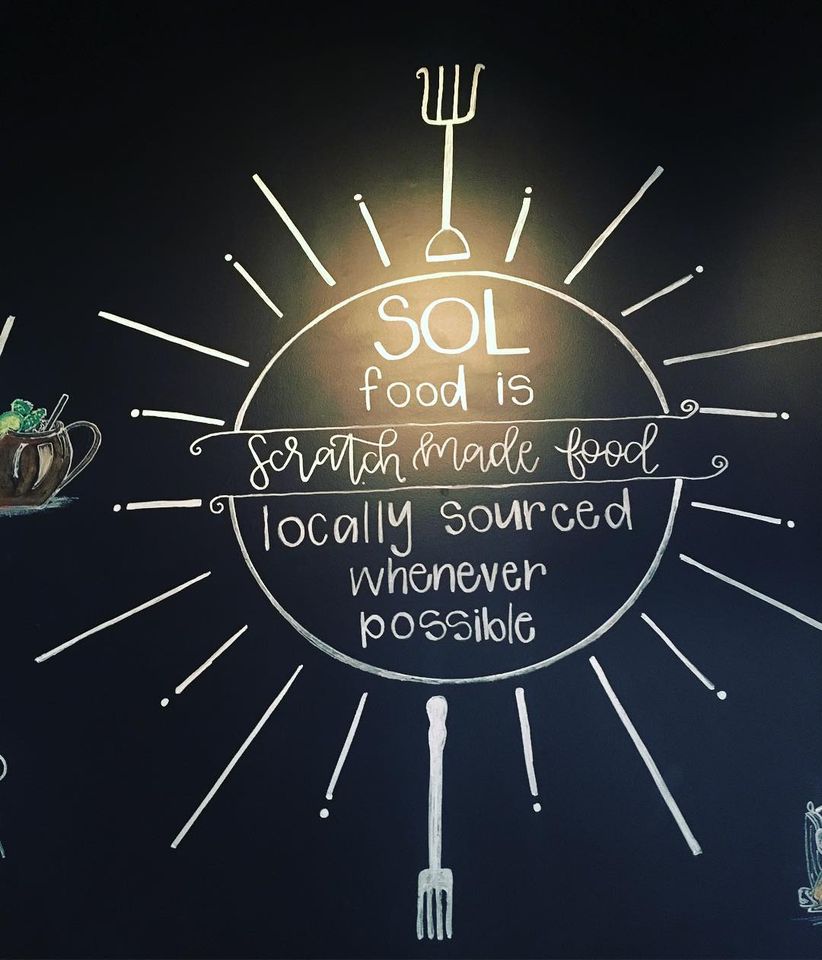 SOL
food is
scratch made food
locally sourced
whenever
possible